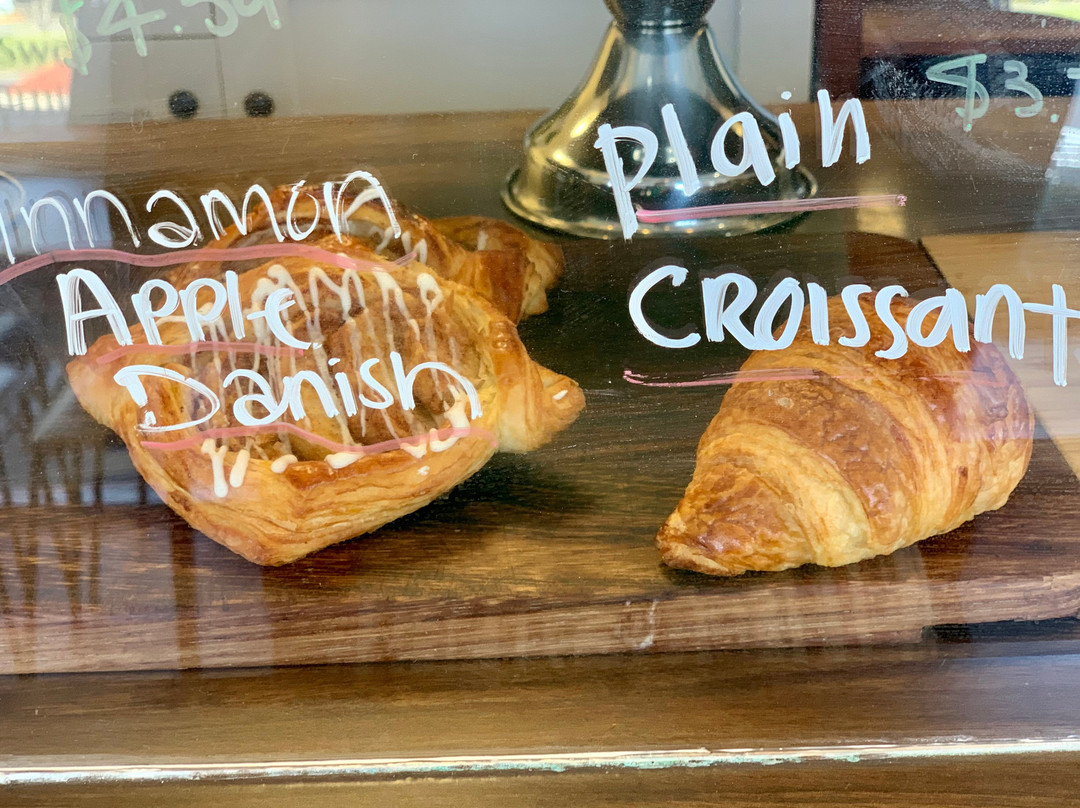 $4.50
$3.
plain
innamon
CRoissant
Apple
Danish